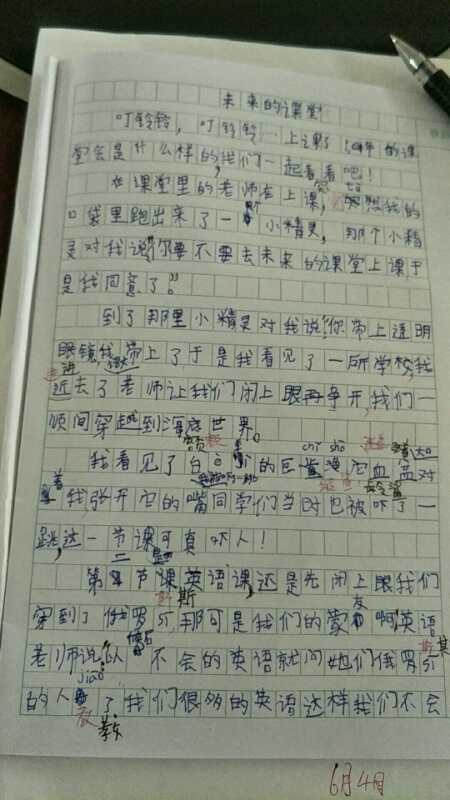 未来的课堂
叮铃铃，叮铃铃…上课了 50年的课
堂会是什么样的，我们一起看看吧！
在课堂里的老师在上课，忽然我的
口袋里跑出来了一个小精灵，那个小精
灵对我说“你要不要去未来的课堂上课于
是我同意了”。
到了那里小精灵对我说“你带上透明
眼镜我带上了于是我看见了一所学校，我
近去了老师让我们闭上眼再争开，我们一
顷间穿越到海底世界。
我看见了白色的巨鲨 它血盆 对
着我张开它的嘴同学们当时也被吓了一
跳，这一节课可真吓人！
第二节课是英语课，还是先闭上眼我们
穿到了俄罗斯，那可是我们的蒙友啊，英语
老师说“ 不会的英语就问他们俄罗斯
的人教了我们很多的英语这样我们不会
6月4日